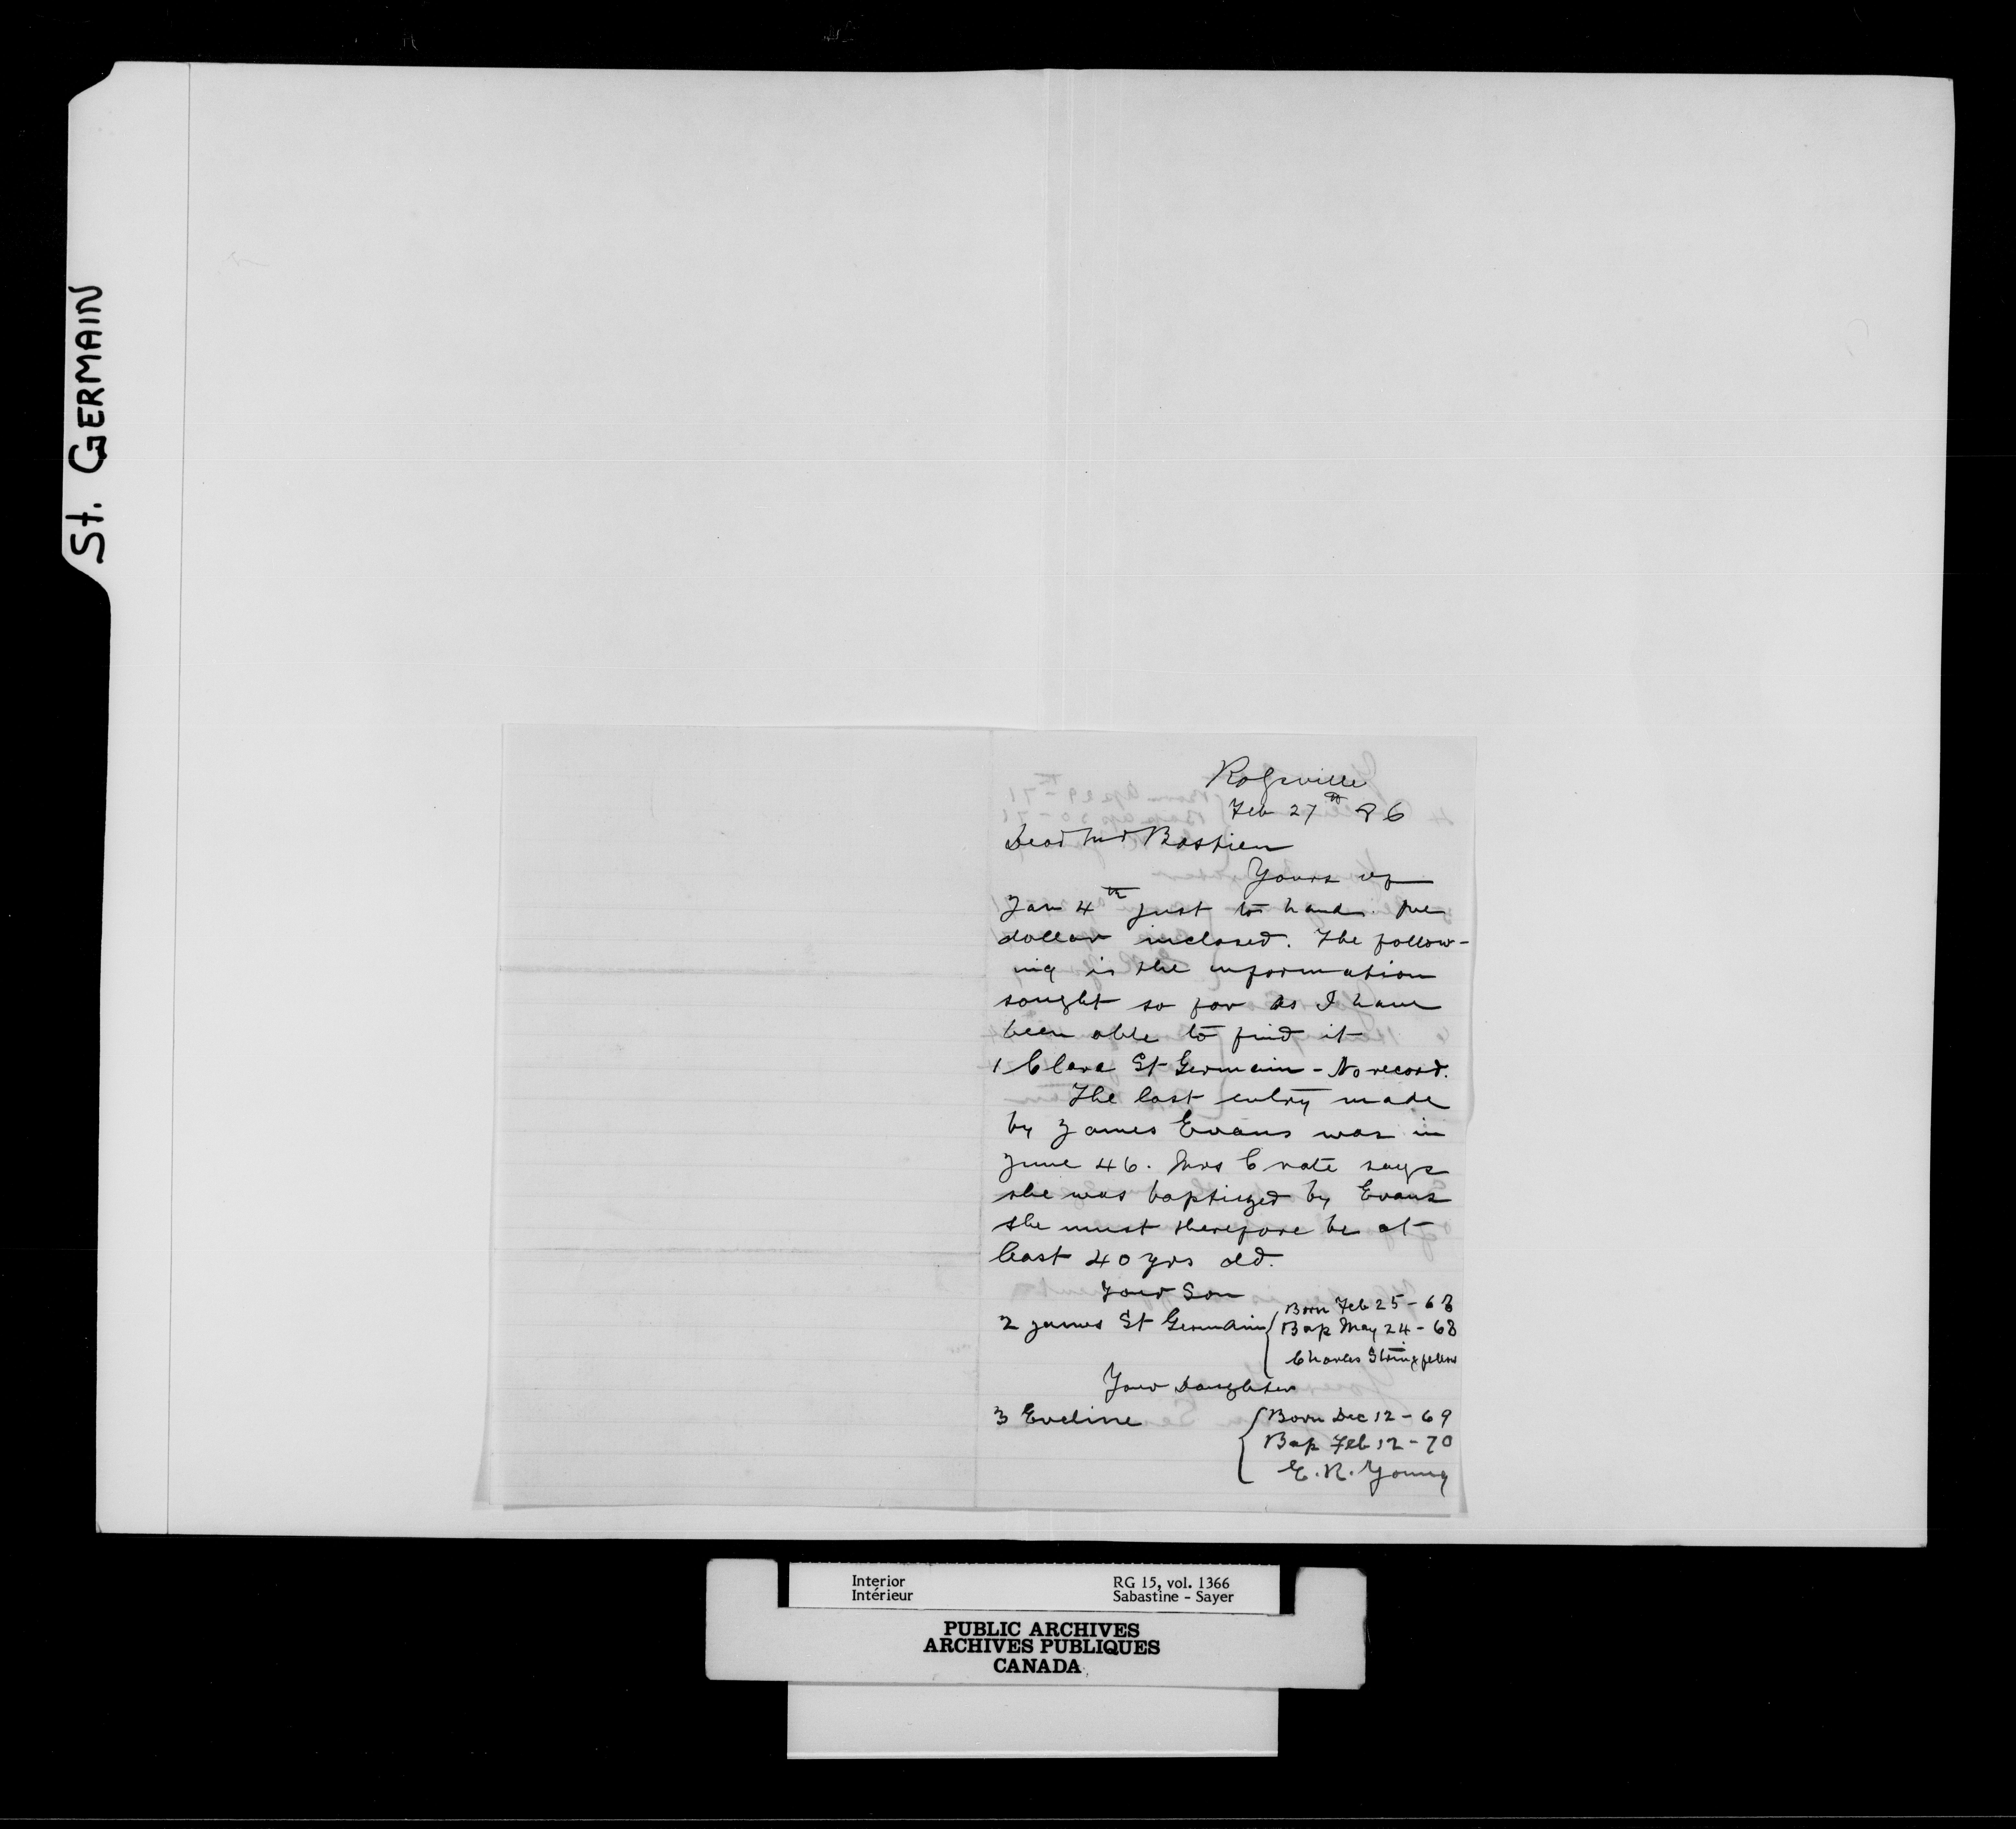 St. GERMAIN
Rossville
Feb 27th 86
Dear Mrs Bastien
Yours of
Jan 4th just to hand. One
dollar inclosed. The follow-
ing is the information
sought so far as I have
been able to find it
1 Clara St Germain - No record.
The last entry made
by James Evans was in
June 46. Mrs Crate says
she was baptized by Evans
she must therefore be at
least 40 yrs old.
Your Son
2 James St Germain { Born Feb 25 - 68
Bap May 24 - 68
Charles Stringfellow
Your Daughter
3 Eveline { Born Dec 12 - 69
Bap Feb 12 - 70
E. R. Young
Interior RG 15, vol. 1366
Intérieur Sabastine - Sayer
PUBLIC ARCHIVES
ARCHIVES PUBLIQUES
CANADA